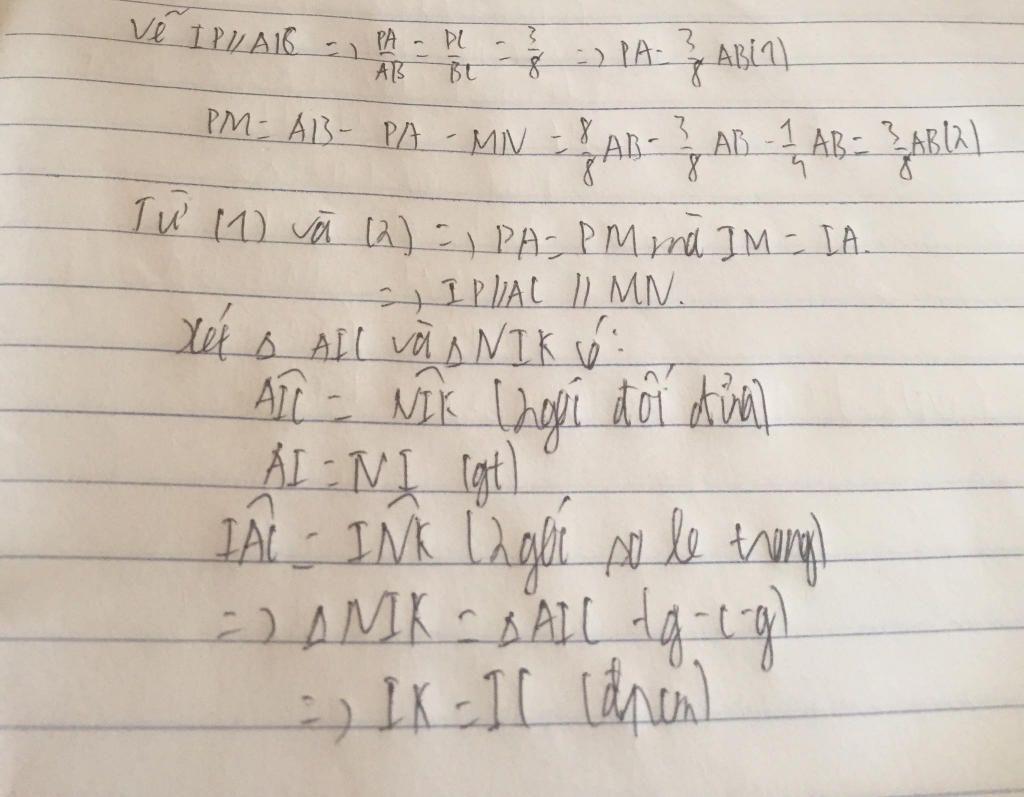 Vẽ IP//AB => PA/AB = DC/BC = 3/8 => PA = 3/8 AB (1)
PM = AB - PA - MN = 8/8 AB - 3/8 AB - 1/4 AB = 3/8 AB (2)
Từ (1) và (2) => PA = PM mà IM = IA.
=> IP//AC // MN.
Xét Δ AIC và Δ NIK có:
AIC = NIK (2 góc đối đỉnh)
AI = NI (gt)
IAC = INK (2 góc so le trong)
=> Δ NIK = Δ AIC (g-c-g)
=> IK = IC (đpcm)